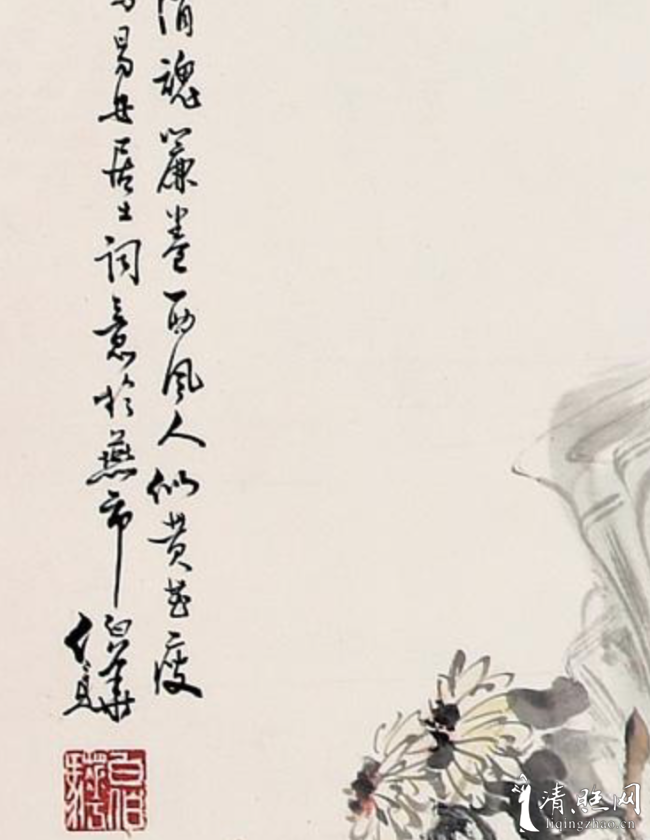 消魂簾卷西風人似黃花瘦
易安居士詞意於燕市
伯驊
伯驊
清照网
liqingzhao.cn